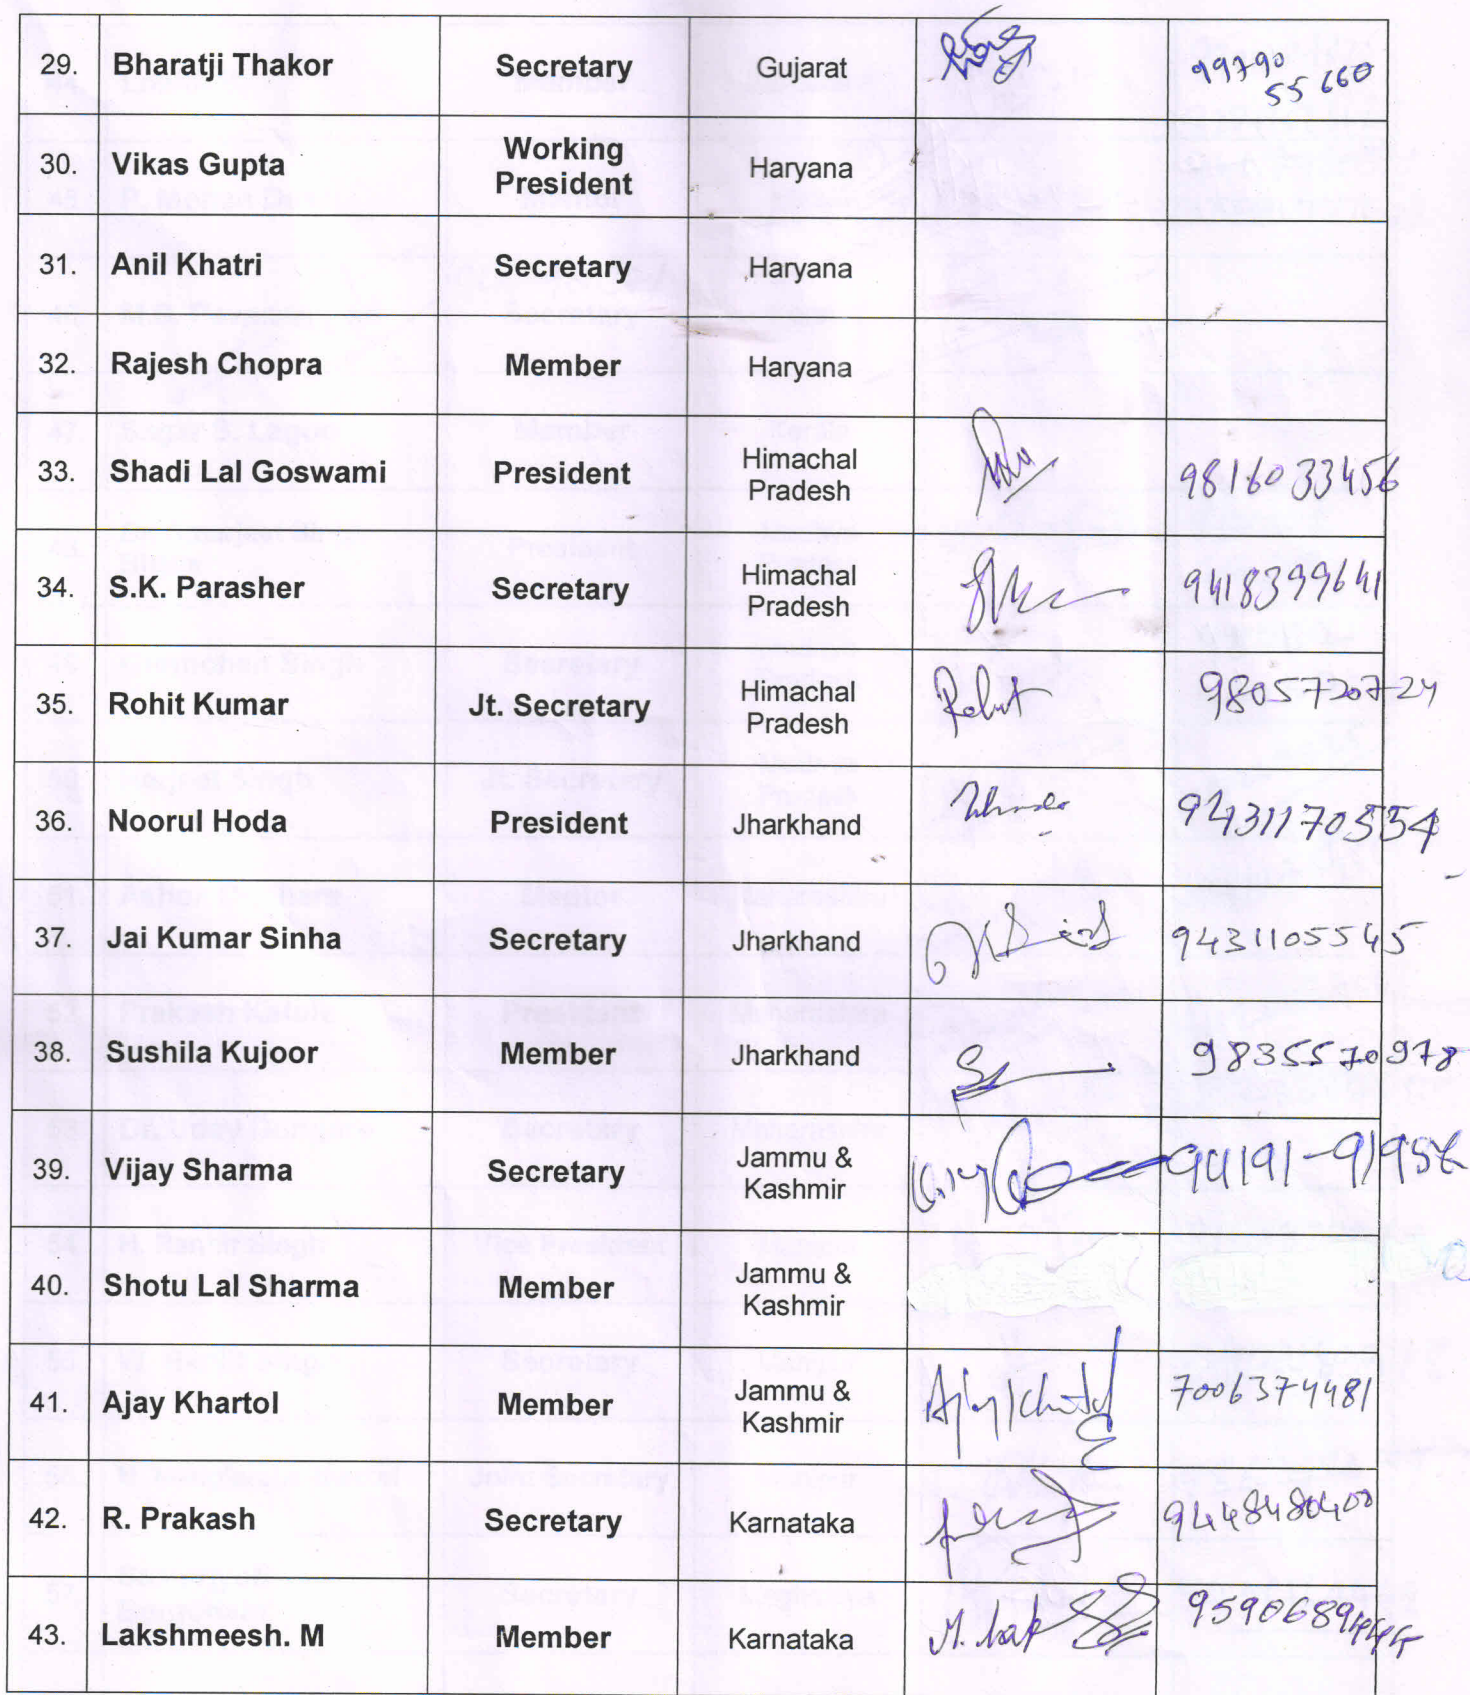 29. Bharatji Thakor Secretary Gujarat 99790
55 660
30. Vikas Gupta Working
President Haryana
31. Anil Khatri Secretary Haryana
32. Rajesh Chopra Member Haryana
33. Shadi Lal Goswami President Himachal
Pradesh 9816033456
34. S.K. Parasher Secretary Himachal
Pradesh 9418399641
35. Rohit Kumar Jt. Secretary Himachal
Pradesh Rohit 9805720724
36. Noorul Hoda President Jharkhand 9431170554
37. Jai Kumar Sinha Secretary Jharkhand 9431105545
38. Sushila Kujoor Member Jharkhand 9835570978
39. Vijay Sharma Secretary Jammu &
Kashmir 94191-91956
40. Shotu Lal Sharma Member Jammu &
Kashmir
41. Ajay Khartol Member Jammu &
Kashmir Ajay Khartol 7006374481
42. R. Prakash Secretary Karnataka 9448480400
43. Lakshmeesh. M Member Karnataka M. Lak 9590689444